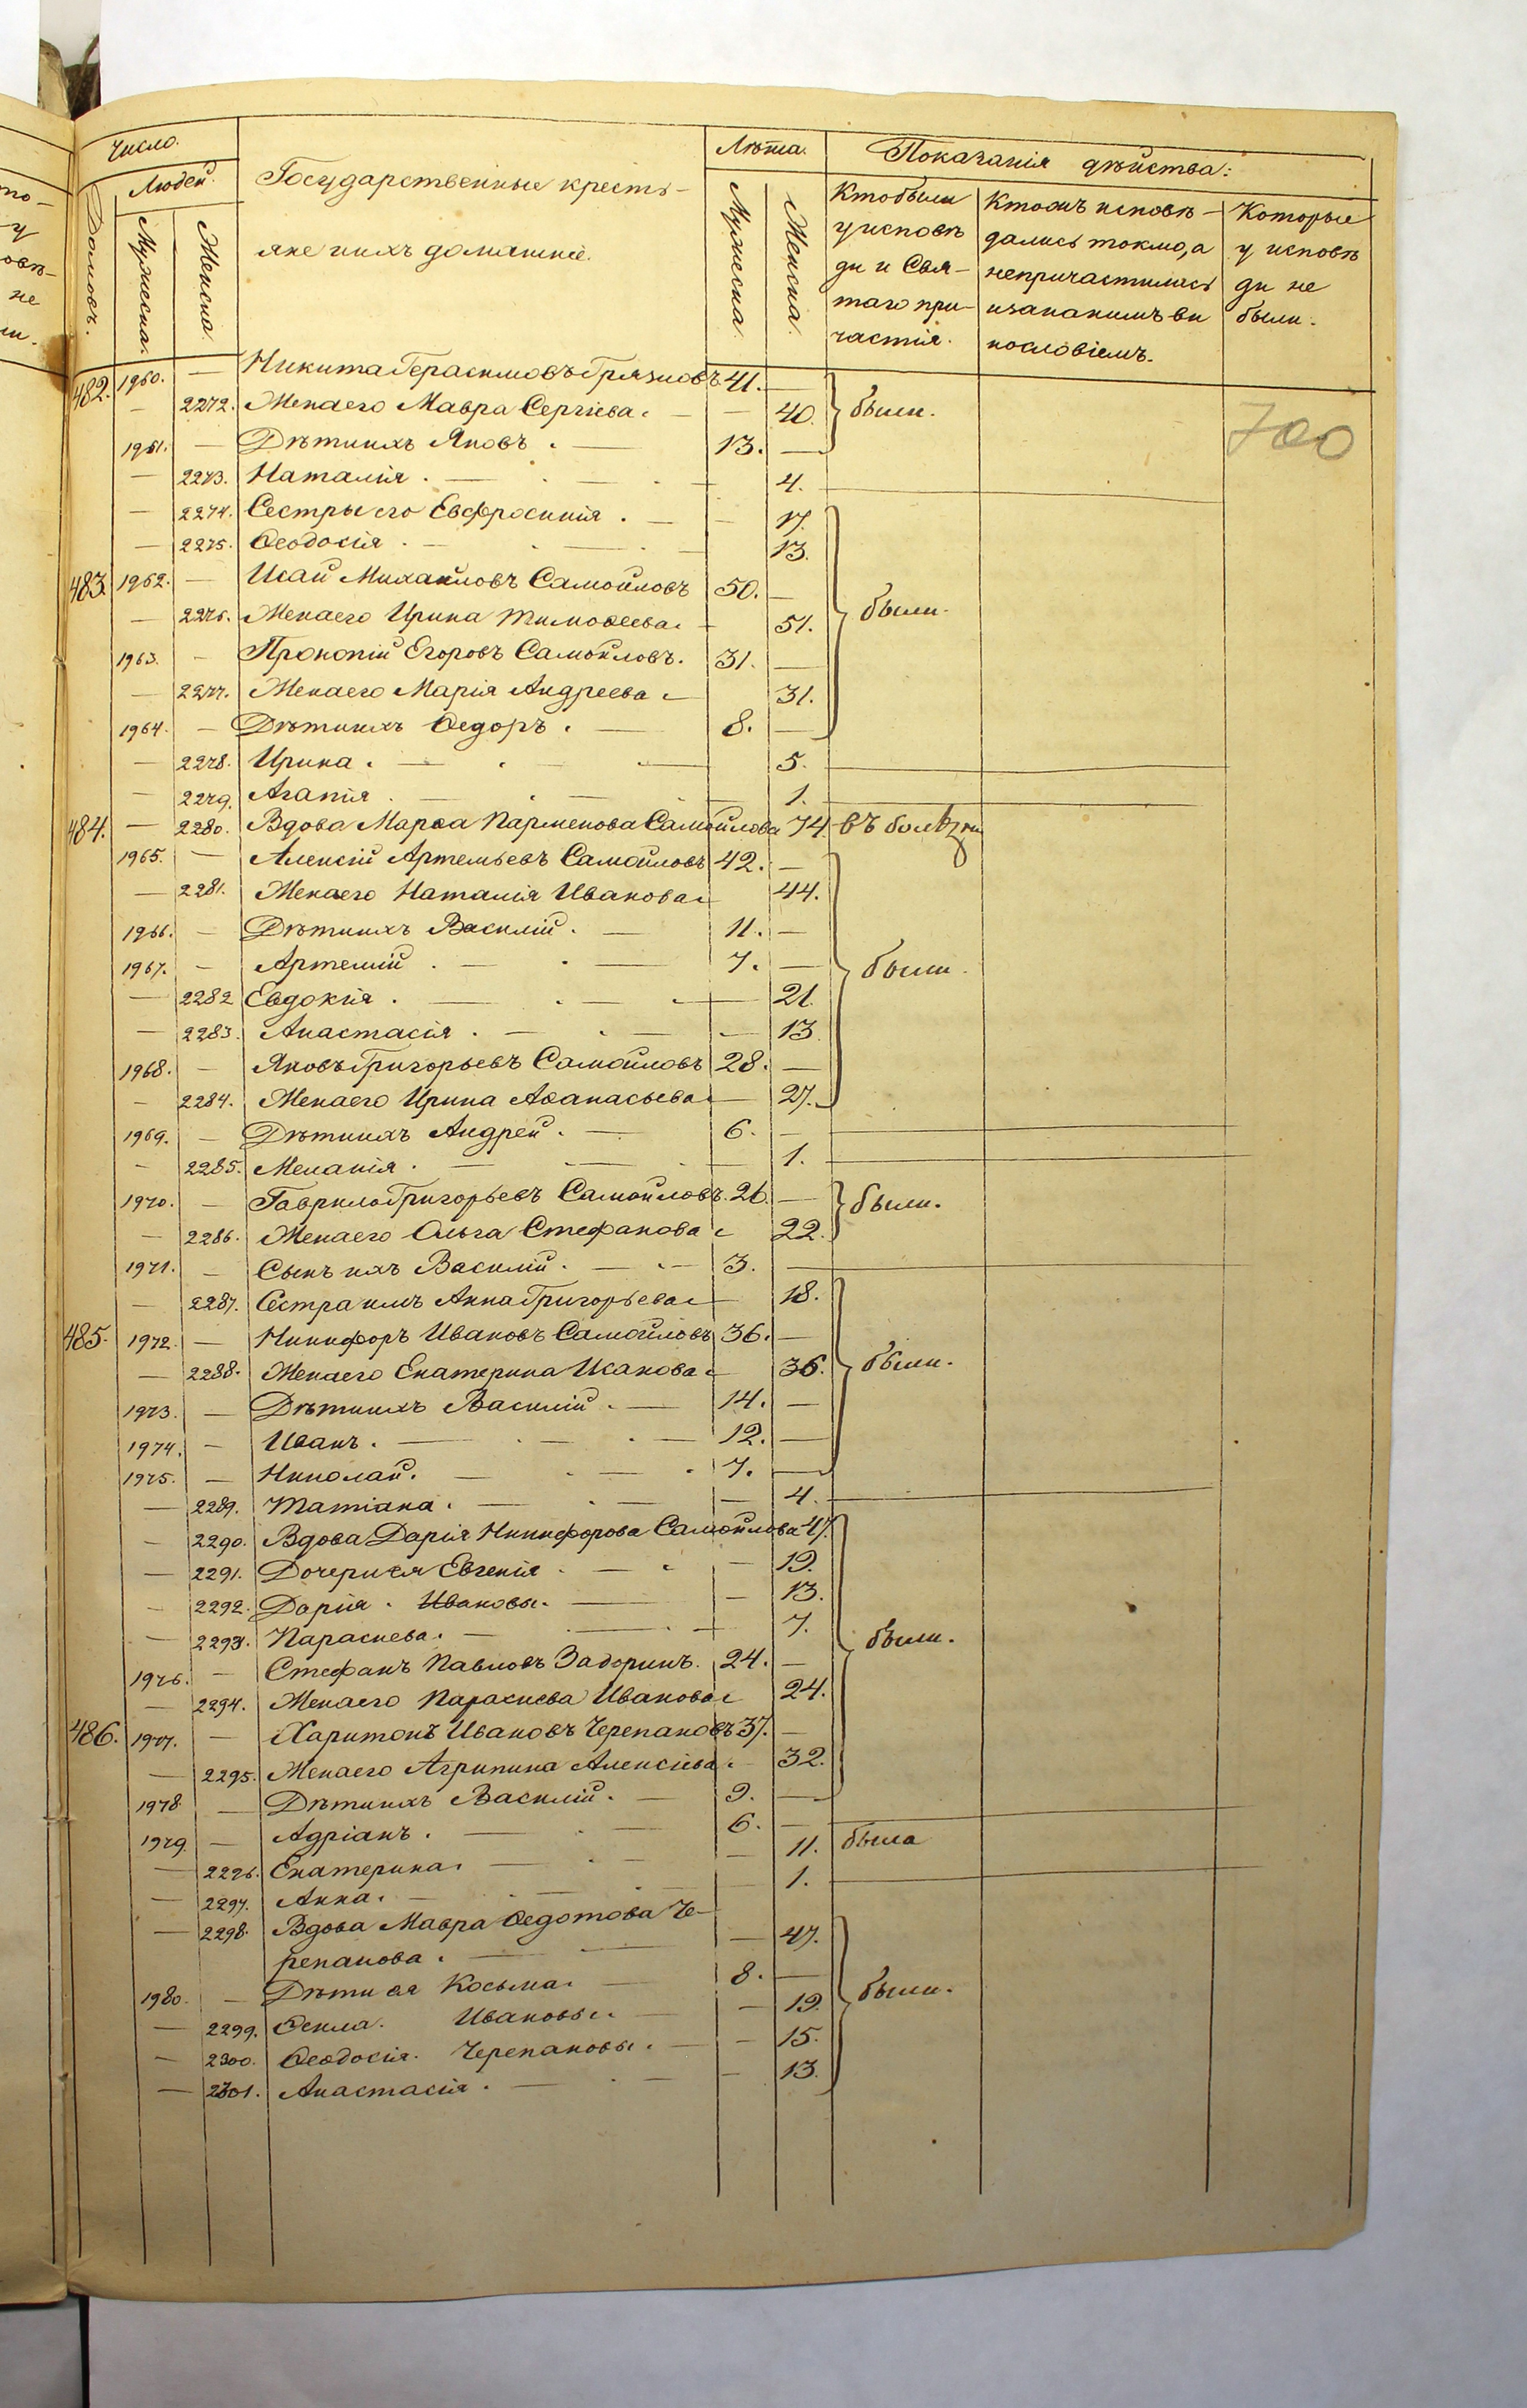 Число.
Людей.
Домовъ.
Мужеска.
Женска.
Государственные крестья-
не и ихъ домашніе.
Лѣта.
Мужеска.
Женска.
Показанія дѣйства:
Кто были
у исповѣ
ди и Свя-
таго при-
частія.
Кто жъ исповѣ-
дались токмо, а
не причастились
и за какимъ ви
нословіемъ.
Которые
у исповѣ
ди не
были.
700
482. 1960. — Никита Герасимовъ Грязновъ 41. —
— 2272. Жена его Мавра Сергіева. — — 40. были.
1961. — Дѣти ихъ Яковъ. — 13. —
— 2273. Наталія. — 4.
— 2274. Сестры его Евфросинія. — — 17.
— 2275. Ѳеодосія. — 13.
483. 1962. — Исай Михайловъ Самойловъ 50. —
— 2276. Жена его Ирина Тимоѳеева. — 51. были.
1963. — Прокопій Егоровъ Самойловъ. 31. —
— 2277. Жена его Марія Андреева — 31.
1964. — Дѣти ихъ Ѳедоръ. — 8. —
— 2278. Ирина. — 5.
— 2279. Агапія. — 1.
484. — 2280. Вдова Марѳа Парменова Самойлова 74. въ болѣзни
1965. — Алексій Артемьевъ Самойловъ 42. —
— 2281. Жена его Наталія Иванова — 44.
1966. — Дѣти ихъ Василій. — 11. —
1967. — Артемій. — 7. — были.
— 2282 Евдокія. — 21.
— 2283. Анастасія. — 13.
1968. — Яковъ Григорьевъ Самойловъ 28. —
— 2284. Жена его Ирина Аѳанасьева — 27.
1969. — Дѣти ихъ Андрей. — 6. —
— 2285. Меланія. — 1.
1970. — Гаврило Григорьевъ Самойловъ. 26. — были.
— 2286. Жена его Ольга Стефанова — 22.
1971. — Сынъ ихъ Василій. — 3. —
— 2287. Сестра имъ Анна Григорьева — 18.
485. 1972. — Никифоръ Ивановъ Самойловъ 36. —
— 2288. Жена его Екатерина Исакова — 36. были.
1973. — Дѣти ихъ Василій. — 14. —
1974. — Иванъ. — 12. —
1975. — Николай. — 7. —
— 2289. Татіана. — 4.
— 2290. Вдова Дарія Никифорова Самойлова 47.
— 2291. Дочери ея Евгенія. — 19.
— 2292. Дарія. Ивановы. — 13.
— 2293. Параскева. — 7. были.
1976. — Стефанъ Павловъ Задоринъ. 24. —
— 2294. Жена его Параскева Иванова 24.
486. 1977. — Харитонъ Ивановъ Черепановъ 37. —
— 2295. Жена его Агрипина Алексіева. 32.
1978 — Дѣти ихъ Василій. — 9. —
1979 — Адріанъ. — 6. —
— 2296. Екатерина. — 11. была
— 2297. Анна. — 1.
— 2298. Вдова Мавра Ѳедотова Че-
репанова. — 47.
1980. — Дѣти ея Косьма. — 8. —
— 2299. Ѳекла. Ивановы. — 19. были.
— 2300. Ѳеодосія. Черепановы. — 15.
— 2301. Анастасія. — 13.